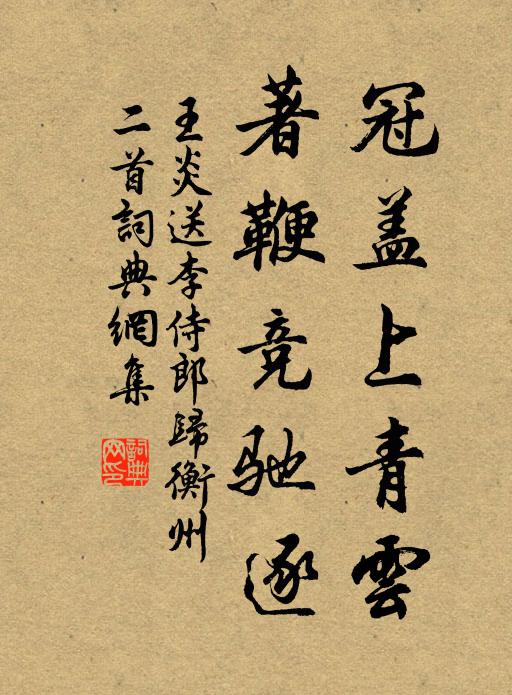 冠盖上青雲
著鞭竞驰逐
王炎送李侍郎歸衡州
二首詞典網集
詞典
网印